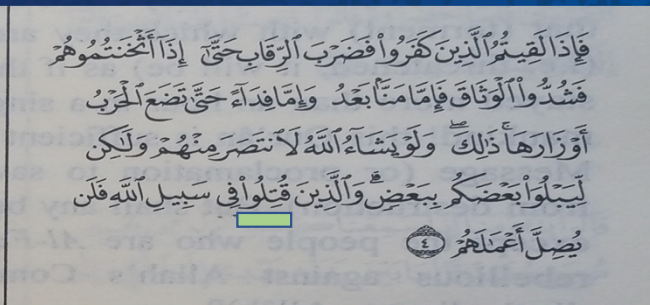 فَإِذَا لَقِيتُمُ ٱلَّذِينَ كَفَرُوا۟ فَضَرْبَ ٱلرِّقَابِ حَتَّىٰٓ إِذَآ أَثْخَنتُمُوهُمْ
فَشُدُّوا۟ ٱلْوَثَاقَ فَإِمَّا مَنًّۢا بَعْدُ وَإِمَّا فِدَآءً حَتَّىٰ تَضَعَ ٱلْحَرْبُ
أَوْزَارَهَا ۚ ذَٰلِكَ ۖ وَلَوْ يَشَآءُ ٱللَّهُ لَٱنتَصَرَ مِنْهُمْ وَلَٰكِن
لِّيَبْلُوَا۟ بَعْضَكُم بِبَعْضٍ ۗ وَٱلَّذِينَ قُتِلُوا۟ فِى سَبِيلِ ٱللَّهِ فَلَن
يُضِلَّ أَعْمَٰلَهُمْ ٤